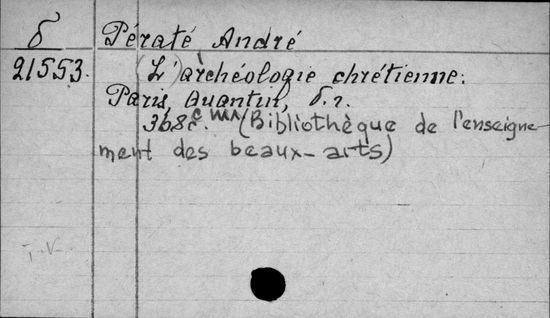 б Pératé André
21553. (L')archéologie chrétienne.
Paris, Quantin, б.г.
368с. ил (Bibliothèque de l'enseigne-
ment des beaux-arts)
T.V.